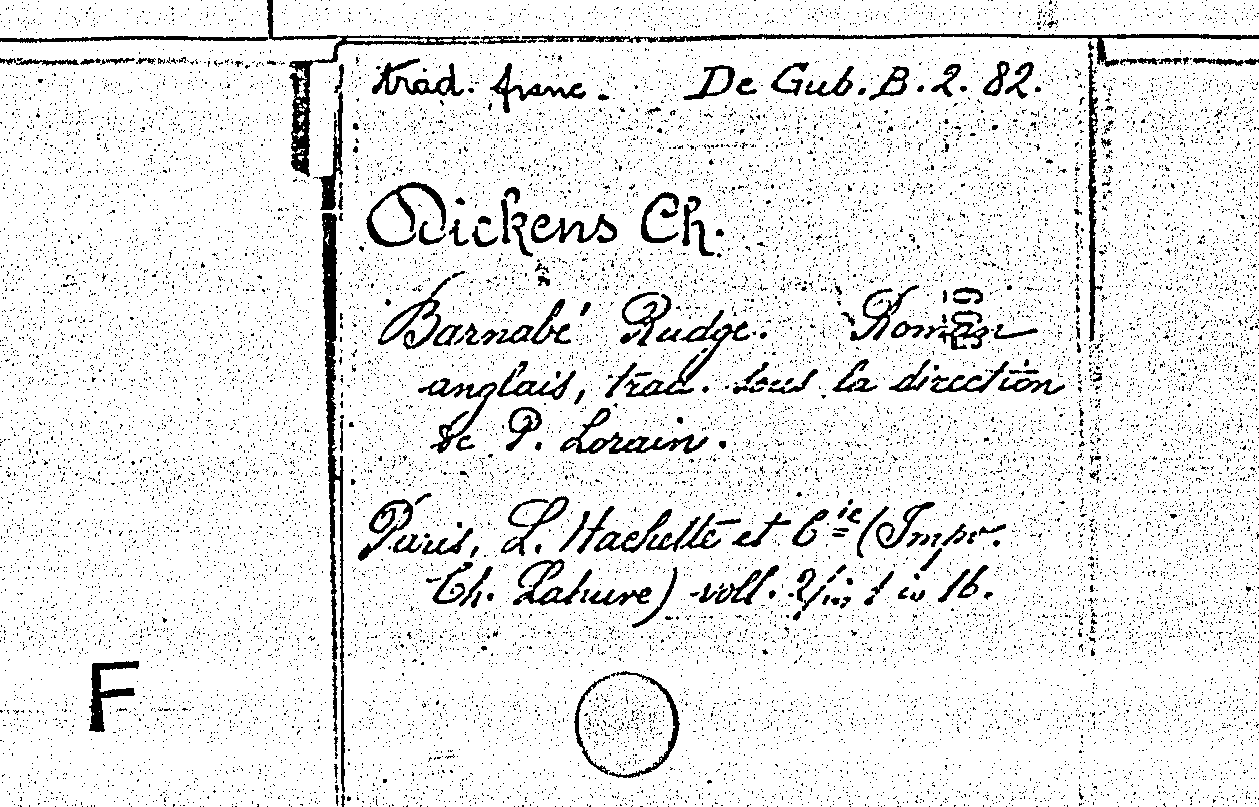 trad. franc. De Gub. B. 2. 82.
Dickens Ch.
Barnabé Rudge. Roman
anglais, trad. sous la direction
de P. Lorain.
Paris, L. Hachette et Cie (Impr.
Ch. Lahure) voll. 2/in 1 in 16.
F